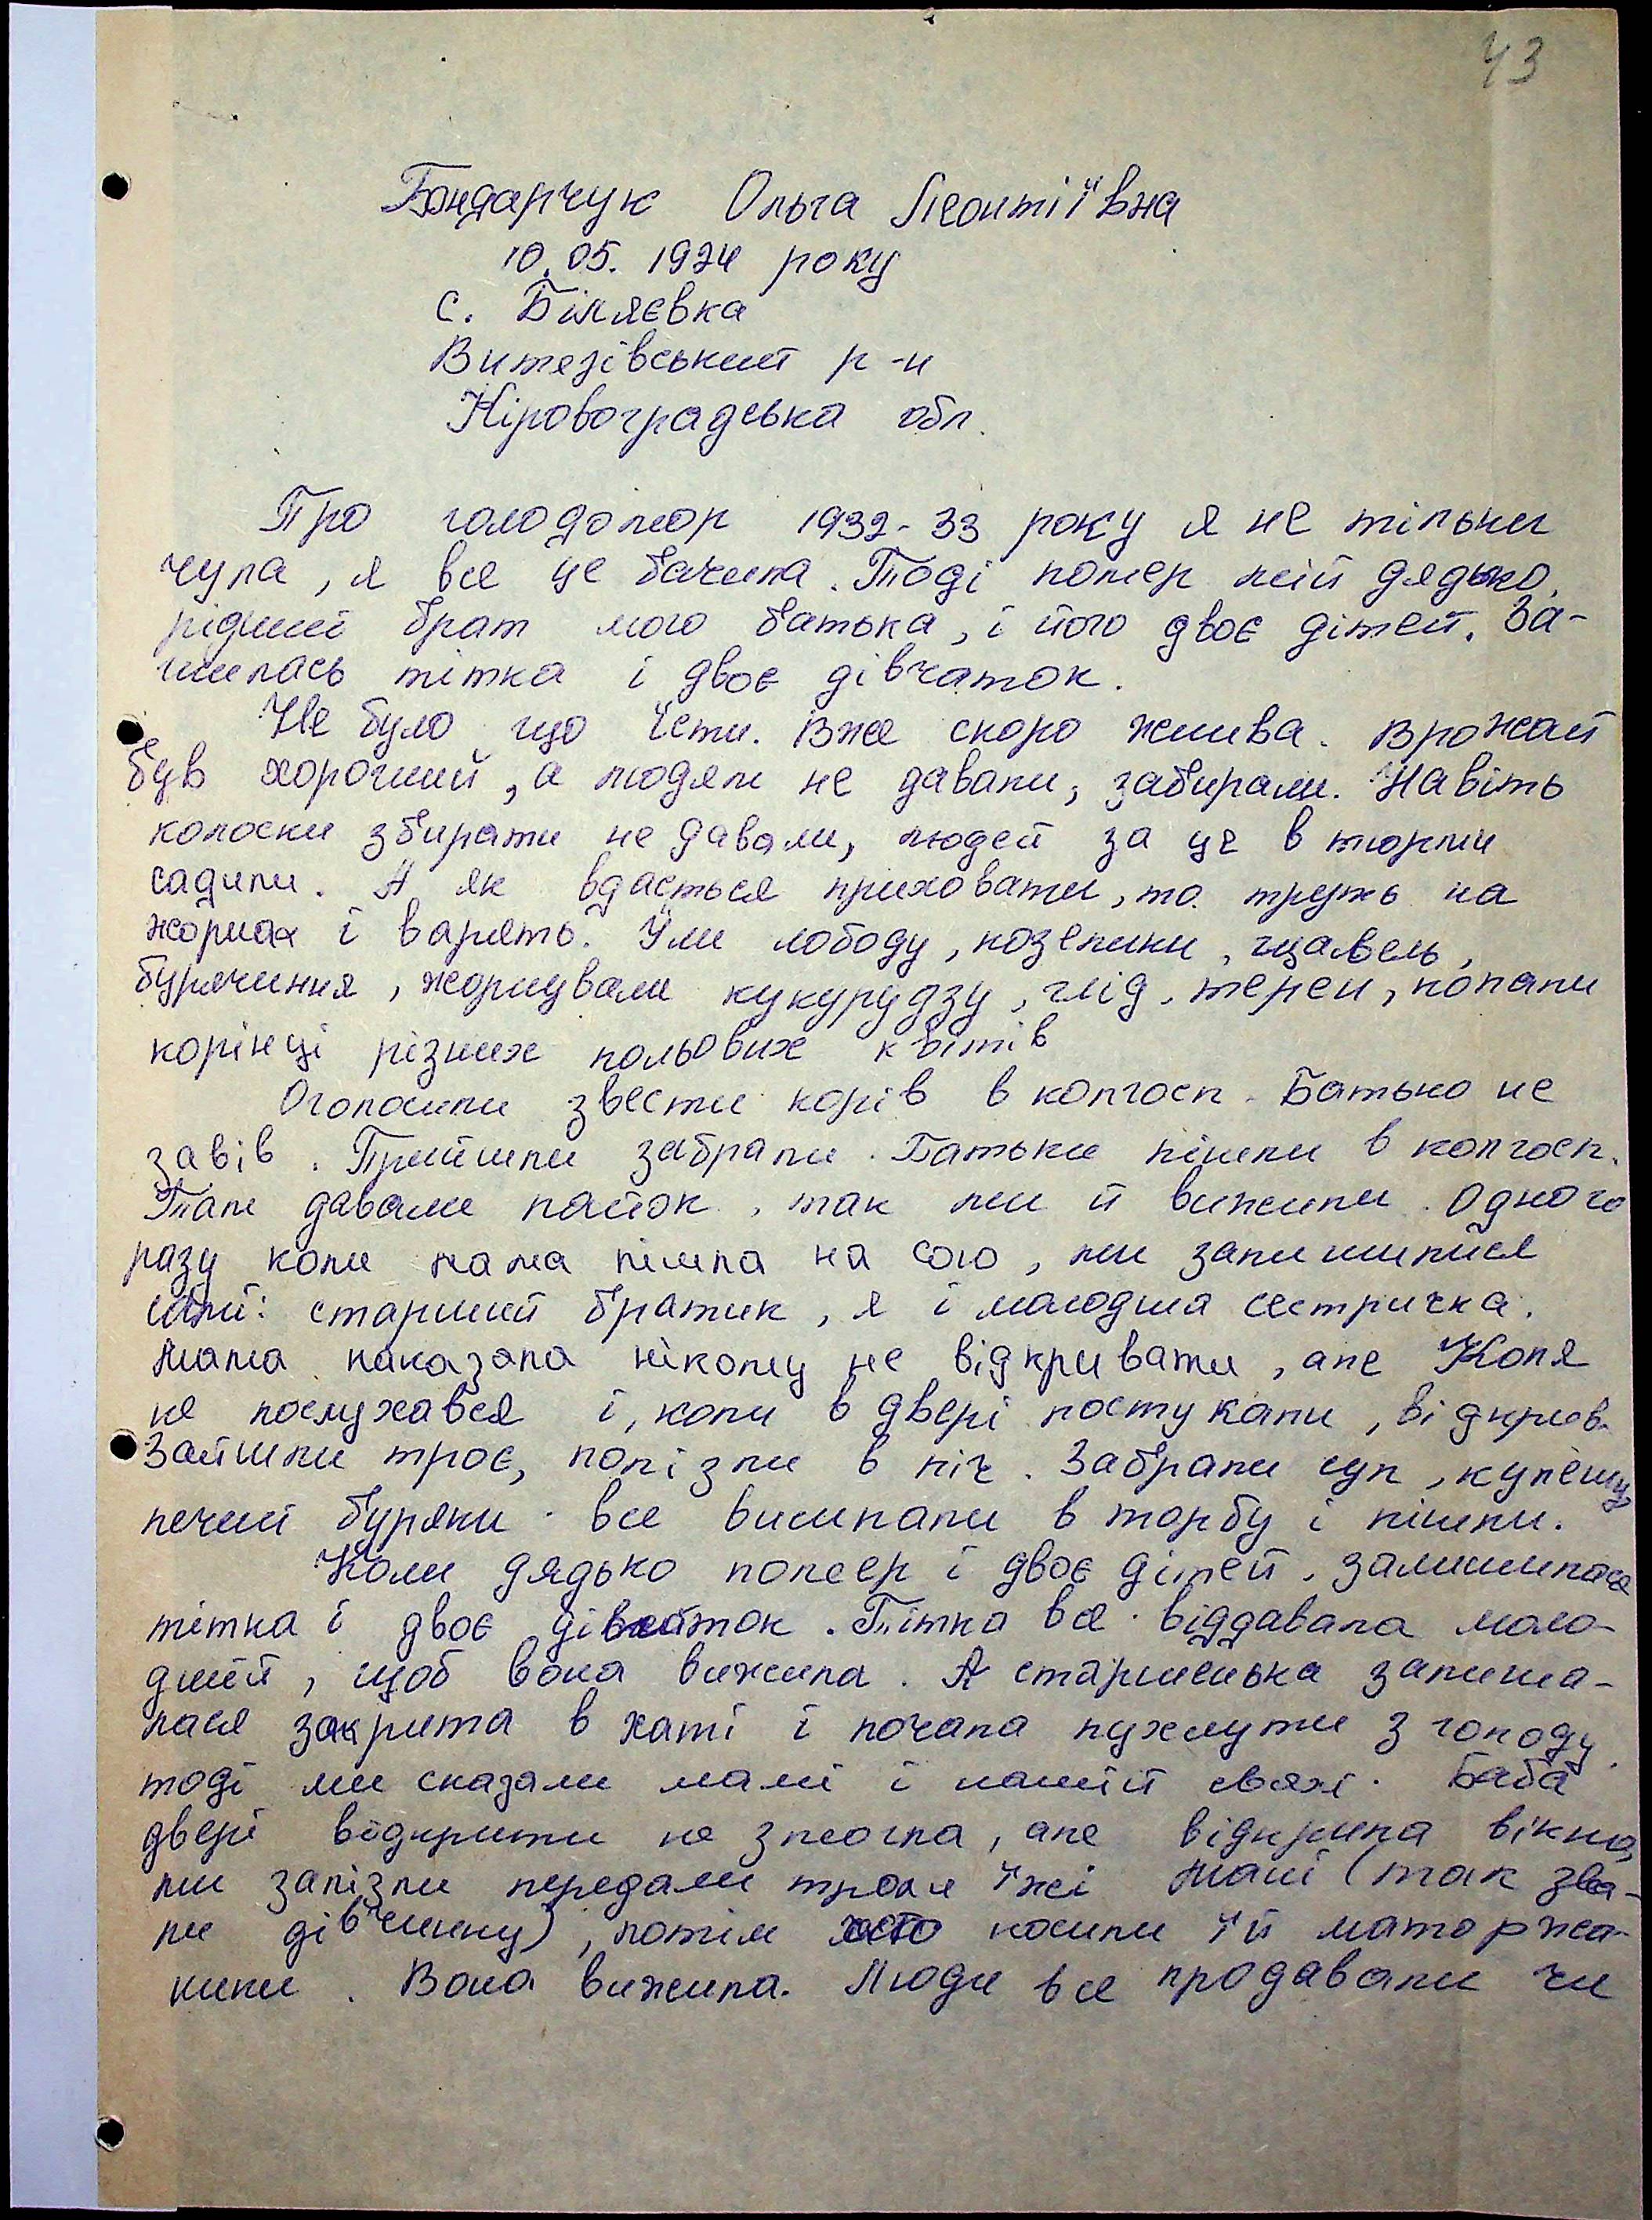 43
Бондарчук Ольга Леонтіївна
10.05.1924 року
с. Біляєвка
Витязівський р-н
Кіровоградська обл.
Про голодомор 1932-33 року я не тільки
чула, я все це бачила. Тоді помер мій дядько,
рідний брат мого батька, і його двоє дітей. За-
шилась тітка і двоє дівчаток.
Не було що їсти. Вже скоро жнива. Врожай
був хороший, а людям не давали, забирали. Навіть
колоски збирати не давали, людей за це в тюрми
садили. А як вдасться приховати, то труть на
жорнах і варять. Їли лободу, козелики, щавель,
бурячиння, жорнували кукурудзу, глід, терен, копали
корінці різних польових квітів
Оголосили звести корів в колгосп. Батько не
завів. Прийшли забрали. Батьки пішли в колгосп.
Там давали пайок, так ми й вижили. Одного
разу коли мама пішла на сою, ми залишилися
самі: старший братик, я і молодша сестричка.
Мама наказала нікому не відкривати, але Коля
не послухався і, коли в двері постукали, відкрив.
Зайшли троє, полізли в піч. Забрали суп, куліш,
печені буряки все висипали в торбу і пішли.
Коли дядько помер і двоє дітей, залишилася
тітка і двоє дівчаток. Тітка все віддавала моло-
дшій, щоб вона вижила. А старшенька залиша-
лася закрита в хаті і почала пухлути з голоду.
тоді ми сказали мамі і нашій свасі. Баба
двері відкрити не змогла, але відкрила вікно,
ми залізли передали трохи їжі Мані (так зва-
ли дівчинку), потім носили їй маторжа-
ники. Вона вижила. Люди все продавали чи